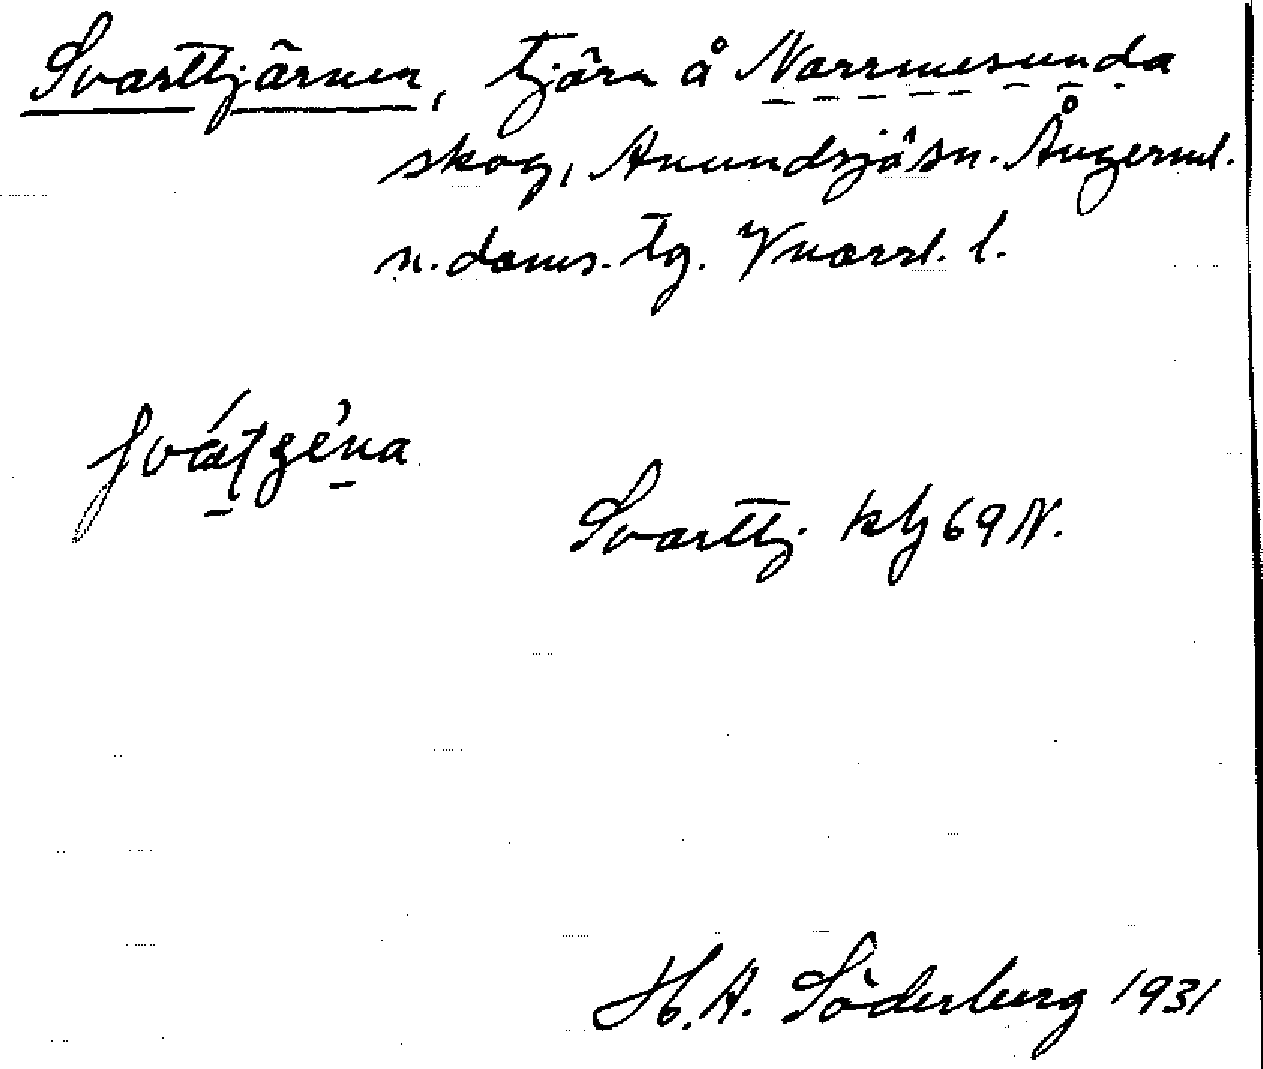 Svarttjärnen, tjärn å Norrmesunda
skog, Anundsjö sn. Ångerml.
n. doms. tg.
Svarttj. kbl 69 N.
H. A. Söderberg 1931